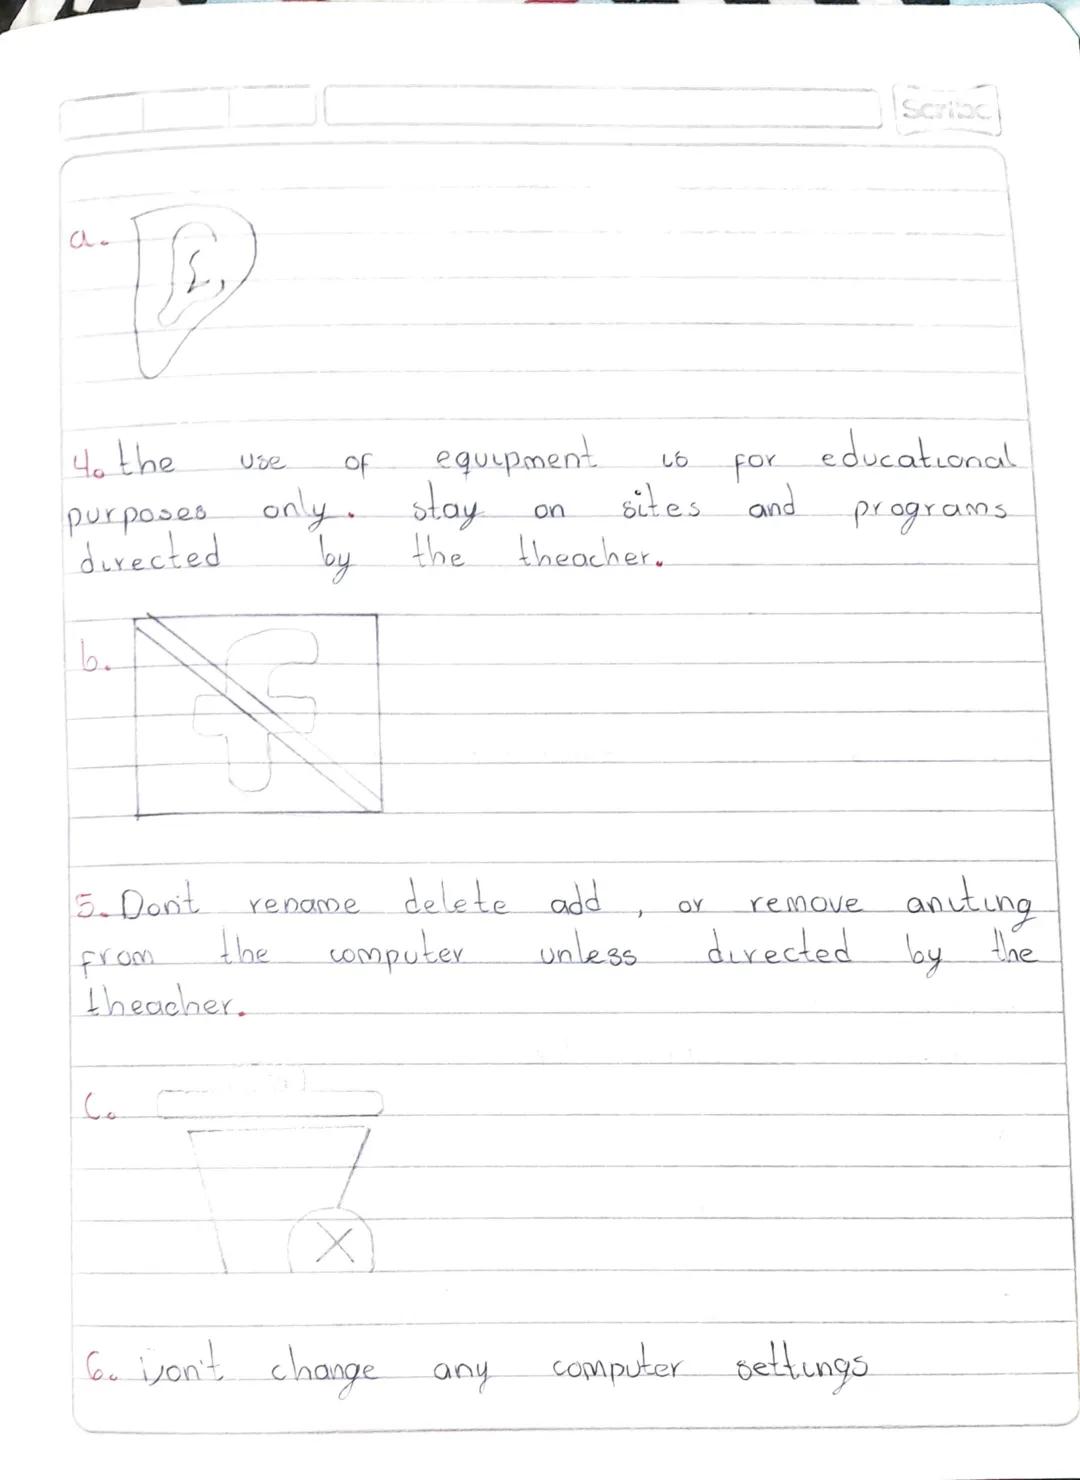 Scribe
a.
4. the use of equipment is for educational
purposes only. stay on sites and programs
directed by the theacher.
b.
f
5. Don't rename delete add, or remove aniting
from the computer unless directed by the
theacher.
C.
X
6. Don't change any computer settings